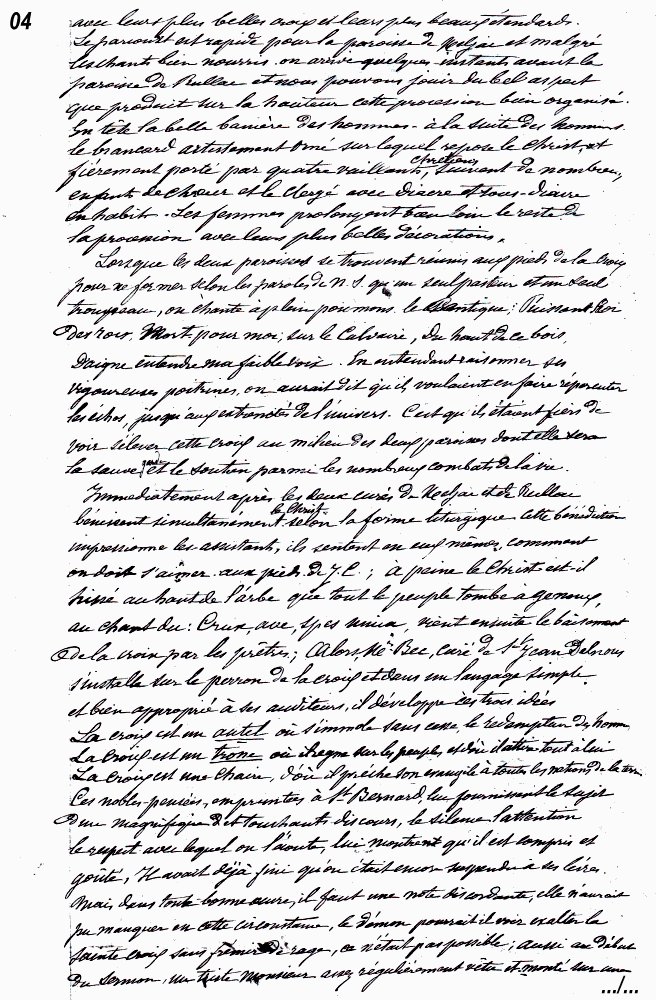 04
avec leurs plus belles croix et leurs plus beaux étendards.
Le parcours est rapide pour la paroisse de Noljac et malgré
les chants bien nourris on arrive quelques instants avant la
paroisse de Rullac et nous pouvons jouir du bel aspect
que produit sur la hauteur cette procession bien organisée.
En tête la belle banière des hommes - à la suite des hommes
le brancard artistement orné sur lequel repose le Christ, et
fièrement porté par quatre vaillants chrétiens, suivent de nombreux
enfants de chœur et le clergé avec diacre et sous-diacre
en habits. Les femmes prolongent bien loin le reste de
la procession avec leurs plus belles décorations.
Lorsque les deux paroisses se trouvent réunies aux pieds de la Croix
pour ne former selon les paroles de N. S. qu'un seul pasteur et un seul
troupeau, on chante à plein poumons le Cantique : Puissant Roi
des rois, Mort pour moi, sur le Calvaire, Du haut de ce bois,
Daigne entendre ma faible voix. En entendant raisonner ses
vigoureuses poitrines, on aurait dit qu'ils voulaient en faire répercuter
les échos, jusqu'aux extremités de l'univers. C'est qu'ils étaient fiers de
voir s'élever cette croix au milieu des deux paroisses dont elle sera
la sauvegarde et le soutien parmi les nombreux combats de la vie.
Immédiatement après les deux curés de Noljac et de Rullac
bénissent simultanément le Christ selon la forme liturgique cette bénédiction
impressionne les assistants, ils sentent en eux mêmes, comment
on doit s'aimer aux pieds de J. C. ; A peine le Christ est-il
hissé au haut de l'arbe que tout le peuple tombe à genoux,
au chant du : Crux, ave, spes unica, vient ensuite le baisement
de la croix par les prêtres ; Alors, Mr Bec, curé de St Jean Delnous
s'installe sur le perron de la croix et dans un langage simple
et bien approprié à ses auditeurs, il développe ces trois idées
La croix est un autel où s'immole sans cesse, le redempteur des hommes
La Croix est un trone où il regne sur les peuples et d'où il attire tout à lui
La Croix est une chaire, d'où il prêche son evangile à toutes les nations de la terre.
Ces nobles pensées, empruntées à St Bernard, lui fournissent le sujet
d'un magnifique et touchants discours, le silence l'attention
le respect avec lequel on l'écoute, lui montrent qu'il est compris et
goûté, Il avait déjà fini qu'on était encore suspendu à ses lèvres.
Mais, dans toute bonne œuvre, il faut une note discordante, elle n'aurait
pu manquer en cette circonstance, le démon pourrait-il voir exalter la
sainte croix sans frémir de rage, ce n'était pas possible ; aussi au début
du Sermon, un triste Monsieur assez régulièrement vêtu et monté sur une
.../...